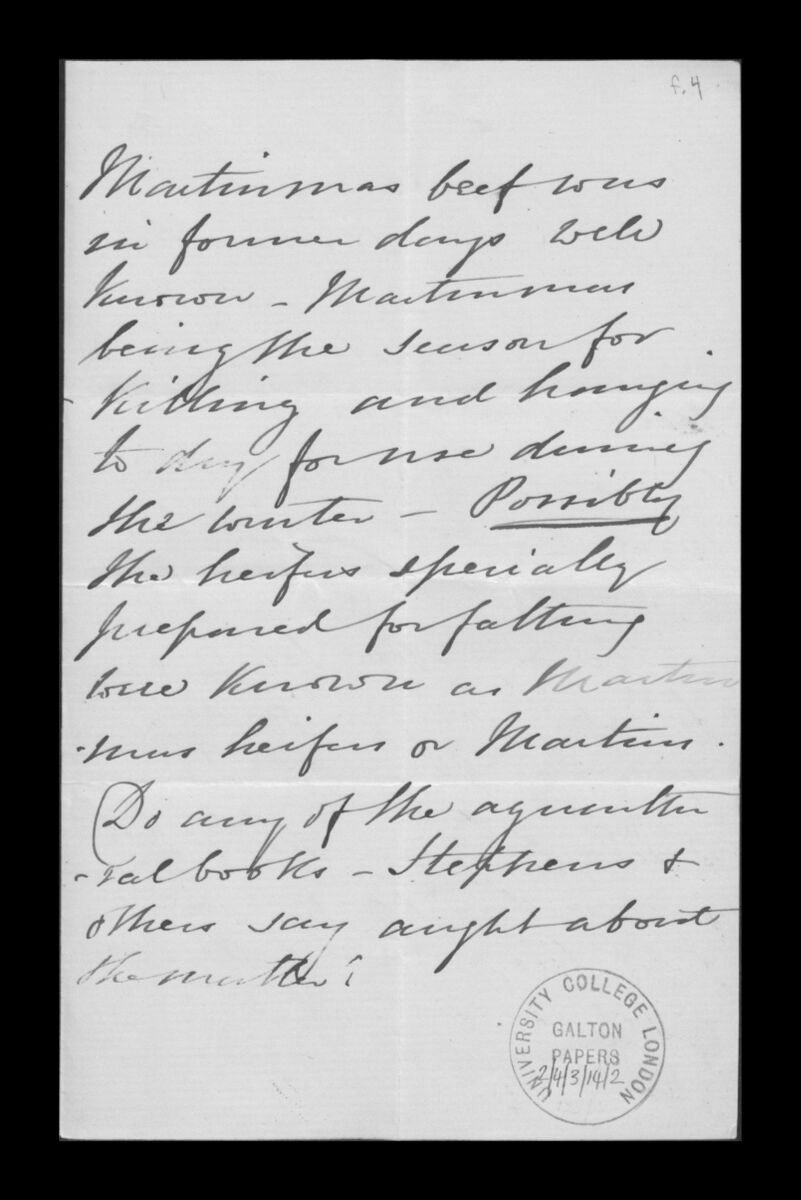 f.4
Martinmas beef was
in former days well
known - Martinmas
being the season for
killing and hanging
to dry for use during
the winter - Possibly
the heifers specially
prepared for fatting
were known as Martin
-mas heifers or Martins.
(Do any of the agricultu
-ral books - Stephens &
others say aught about
the matter?
UNIVERSITY COLLEGE LONDON
GALTON
PAPERS
2/4/3/14/2